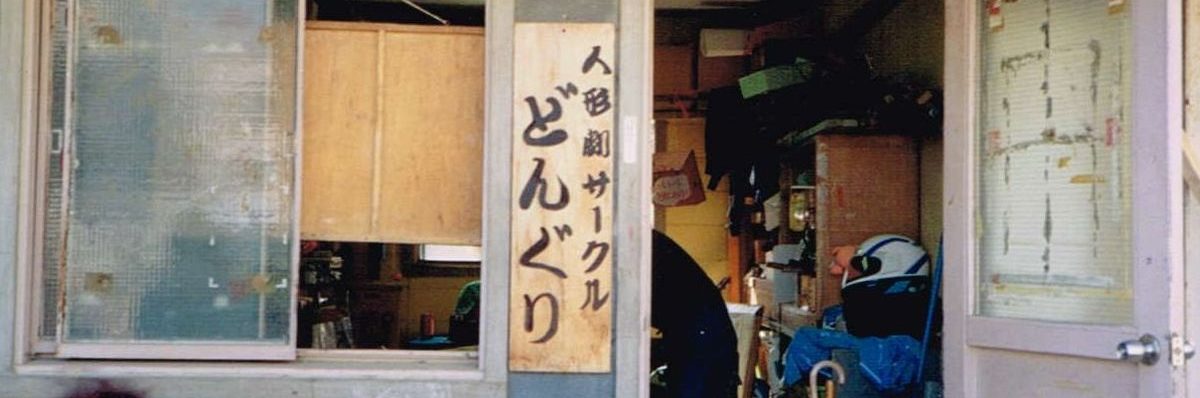 人形劇サークル
どんぐり